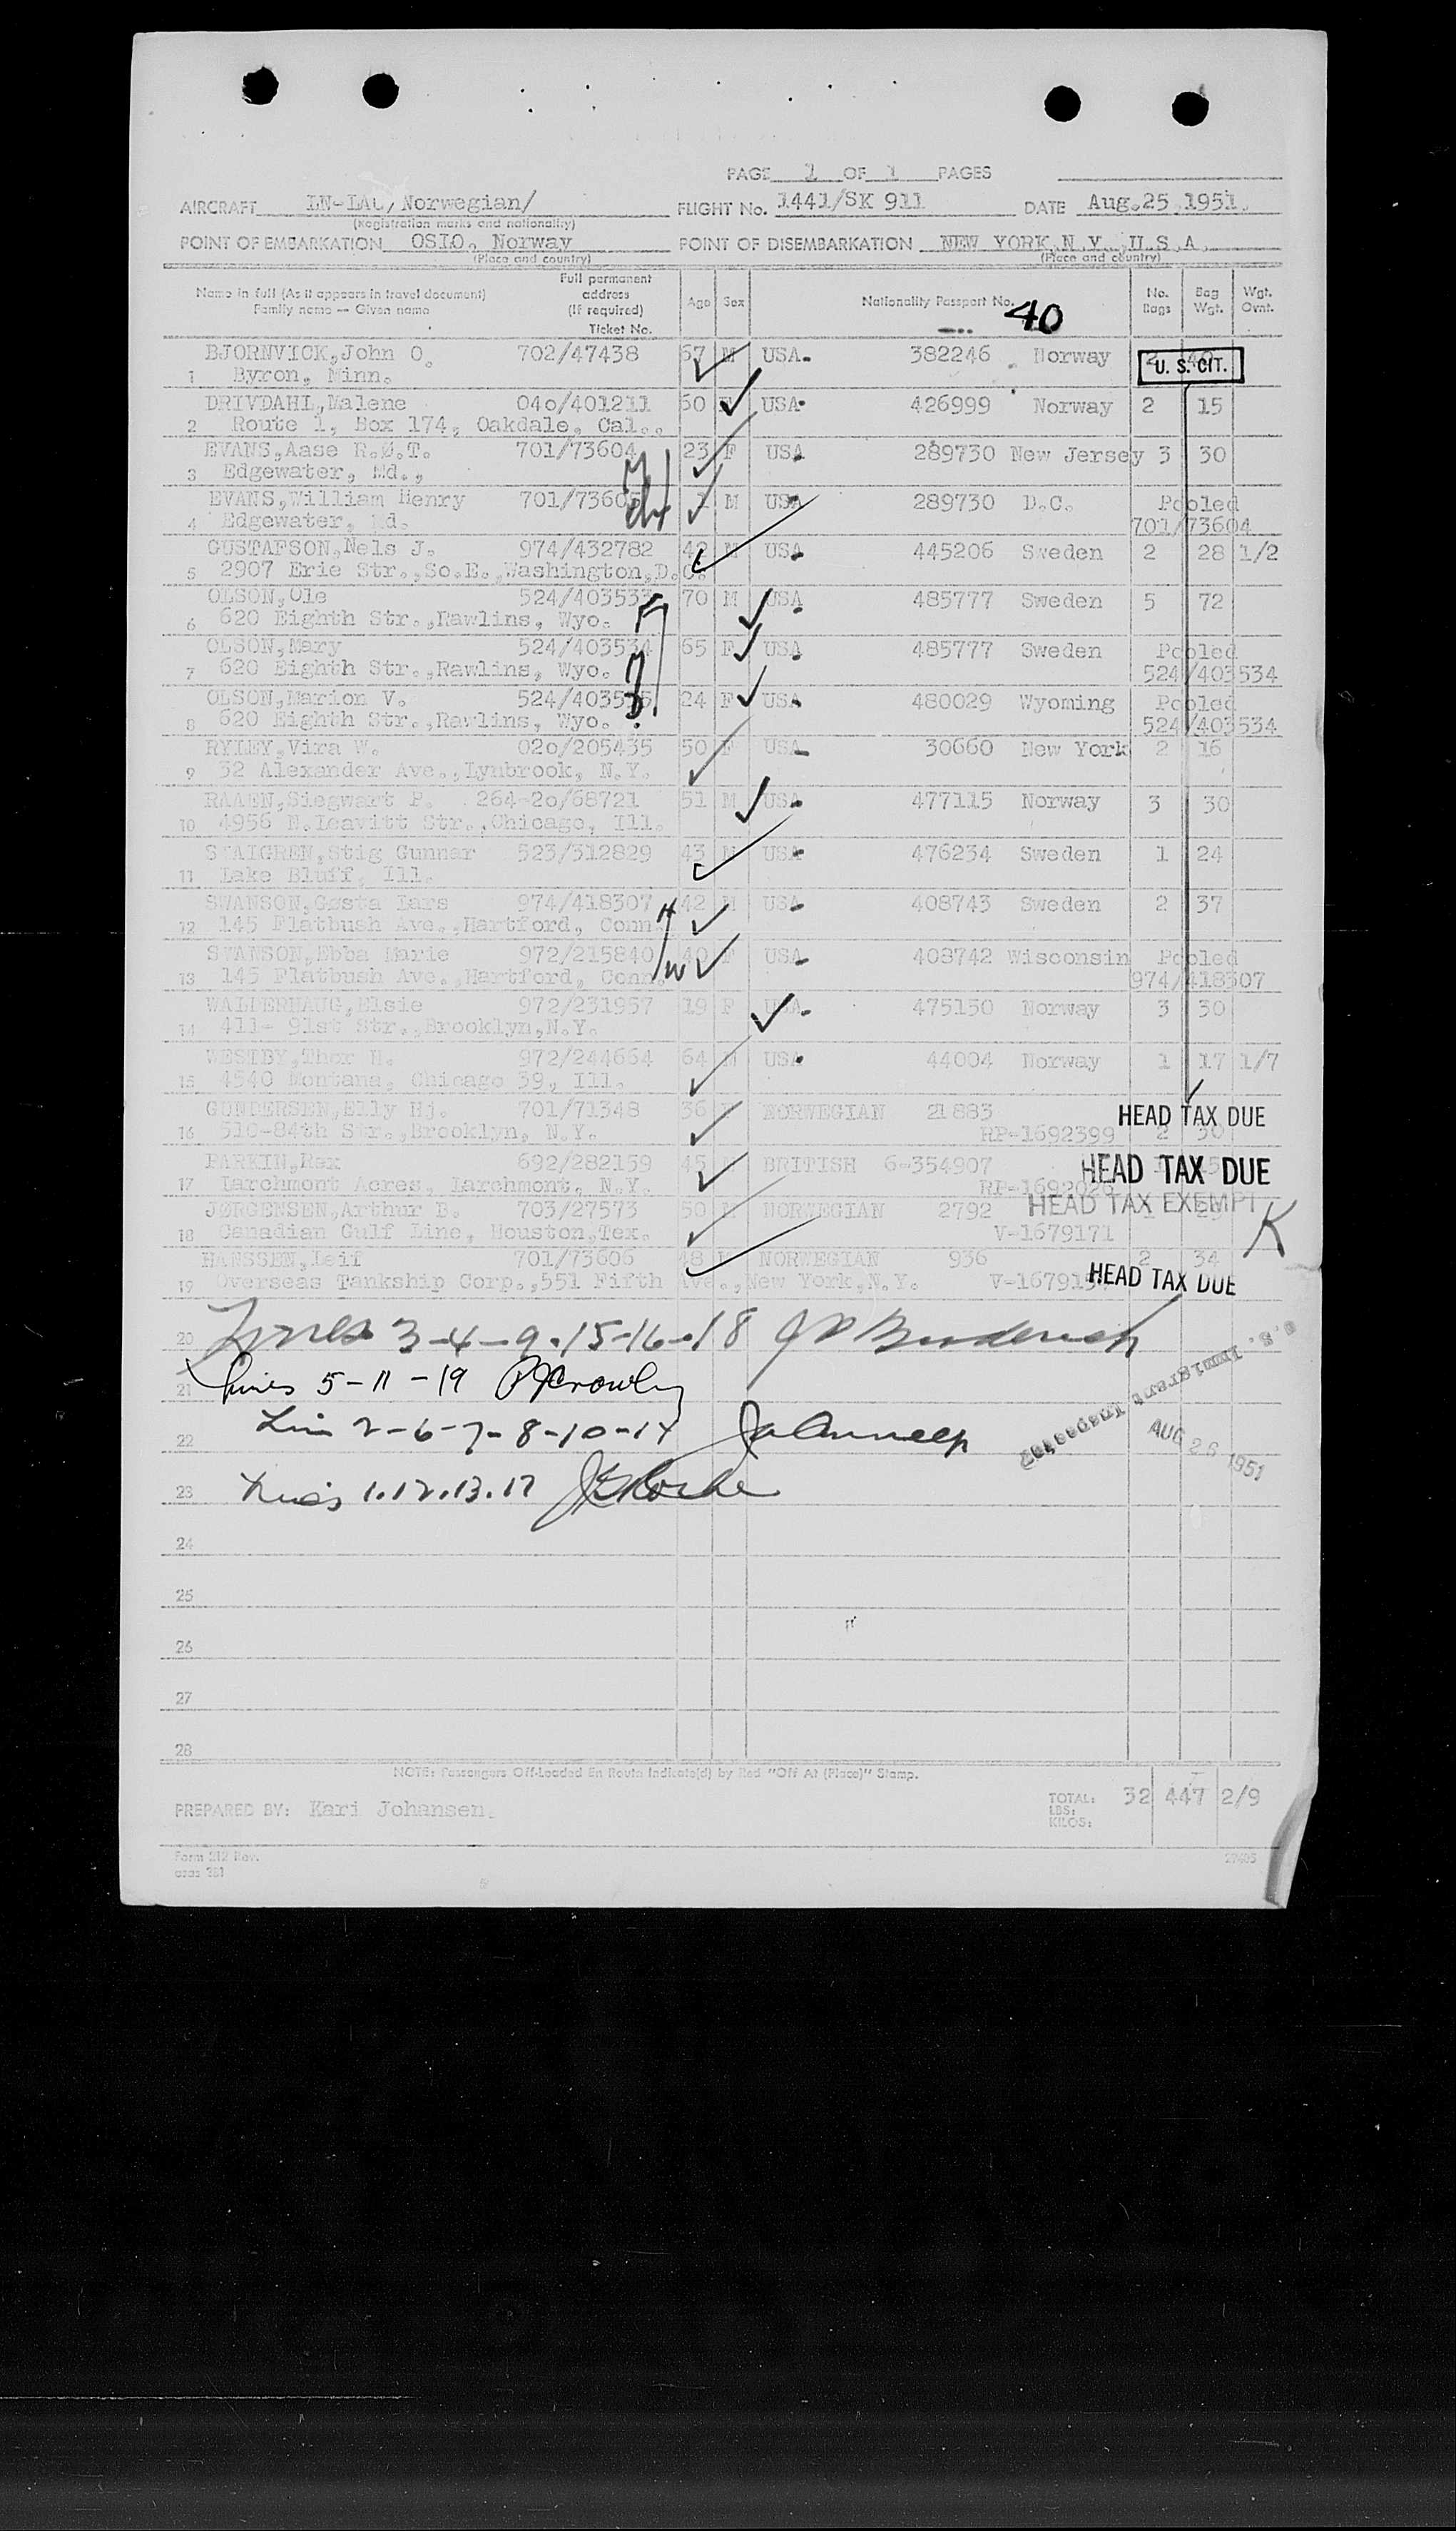 PAGE 1 OF 1 PAGES
AIRCRAFT LN-LAU, Norwegian/ FLIGHT No. 1441/SK 911 DATE Aug.25.1951.
(Registration marks and nationality)
POINT OF EMBARKATION OSLO, Norway POINT OF DISEMBARKATION NEW YORK,N.Y. ,U.S.A.
(Place and country) (Place and country)
Name in full (As it appears in travel document) Family name — Given name Full permanent address (If required) Ticket No. Age Sex Nationality Passport No. No. Bags Bag Wgt. Wgt. Ovnt.
40
BJORNVICK,John O. 702/47438 67 M USA. 382246 Norway 2 40
U. S. CIT.
1 Byron, Minn.
DRIVDAHL,Malene 04o/401211 60 F USA 426999 Norway 2 15
2 Route 1, Box 174, Oakdale, Cal..
EVANS,Aase R.Ø.T. 701/73604 23 F USA 289730 New Jersey 3 30
3 Edgewater, Md.,
EVANS,William Henry 701/73605 1 M USA 289730 D.C. Pooled
4 Edgewater, Md. 701/73604
GUSTAFSON,Nels J. 974/432782 42 M USA 445206 Sweden 2 28 1/2
5 2907 Erie Str.,So.E.,Washington,D.C.
OLSON,Ole 524/403533 70 M USA 485777 Sweden 5 72
6 620 Eighth Str.,Rawlins, Wyo.
OLSON,Mary 524/403534 65 F USA 485777 Sweden Pooled
7 620 Eighth Str.,Rawlins, Wyo. 524/403534
OLSON,Marion V. 524/403535 24 F USA 480029 Wyoming Pooled
8 620 Eighth Str.,Rawlins, Wyo. 524/403534
RYLEY,Vira W. 02o/205435 50 F USA 30660 New York 2 16
9 32 Alexander Ave.,Lynbrook, N.Y.
RAAEN,Siegwart P. 264-2o/68721 51 M USA 477115 Norway 3 30
10 4956 N.Leavitt Str.,Chicago, Ill.
STALGREN,Stig Gunnar 523/312829 43 M USA 476234 Sweden 1 24
11 Lake Bluff, Ill.
SWANSON,Gøsta Lars 974/418307 42 M USA 408743 Sweden 2 37
12 145 Flatbush Ave.,Hartford, Conn. H
SWANSON,Ebba Marie 972/215840 40 F USA 408742 Wisconsin Pooled
13 145 Flatbush Ave.,Hartford, Conn. W 974/418307
WALLERHAUG,Elsie 972/231957 19 F USA. 475150 Norway 3 30
14 411- 91st Str.,Brooklyn,N.Y.
WESTBY,Thor N. 972/244664 64 M USA 44004 Norway 1 17 1/7
15 4540 Montana, Chicago 39, Ill.
GUNDERSEN,Elly Hj. 701/71348 36 F NORWEGIAN 21883 HEAD TAX DUE
16 510-84th Str.,Brooklyn, N.Y. RP-1692399 2 30
PARKIN,Rex 692/282159 45 M BRITISH 6-354907 HEAD TAX DUE
17 Larchmont Acres, Larchmont, N.Y. RP-1692026
JØRGENSEN,Arthur B. 703/27573 50 M NORWEGIAN 2792 HEAD TAX EXEMPT K
18 Canadian Gulf Line, Houston,Tex. V-1679171
HANSSEN,Leif 701/73606 48 M NORWEGIAN 936 2 34
19 Overseas Tankship Corp.,551 Fifth Ave.,New York,N.Y. V-1679157 HEAD TAX DUE
20 Lines 3-4-9-15-16-18 J D Broderick
21 Lines 5-11-19 PJ Crowley
22 Lines 2-6-7-8-10-14
U.S. Immigrant Inspector
AUG 26 1951
23 Lines 1.12.13.17 Roche
24
25
26
27
28
NOTE: Passengers Off-Loaded En Route Indicate(d) by Red "Off At (Place)" Stamp.
PREPARED BY: Kari Johansen. TOTAL: 32 447 2/9
LBS:
KILOS:
Form 212 Rev.